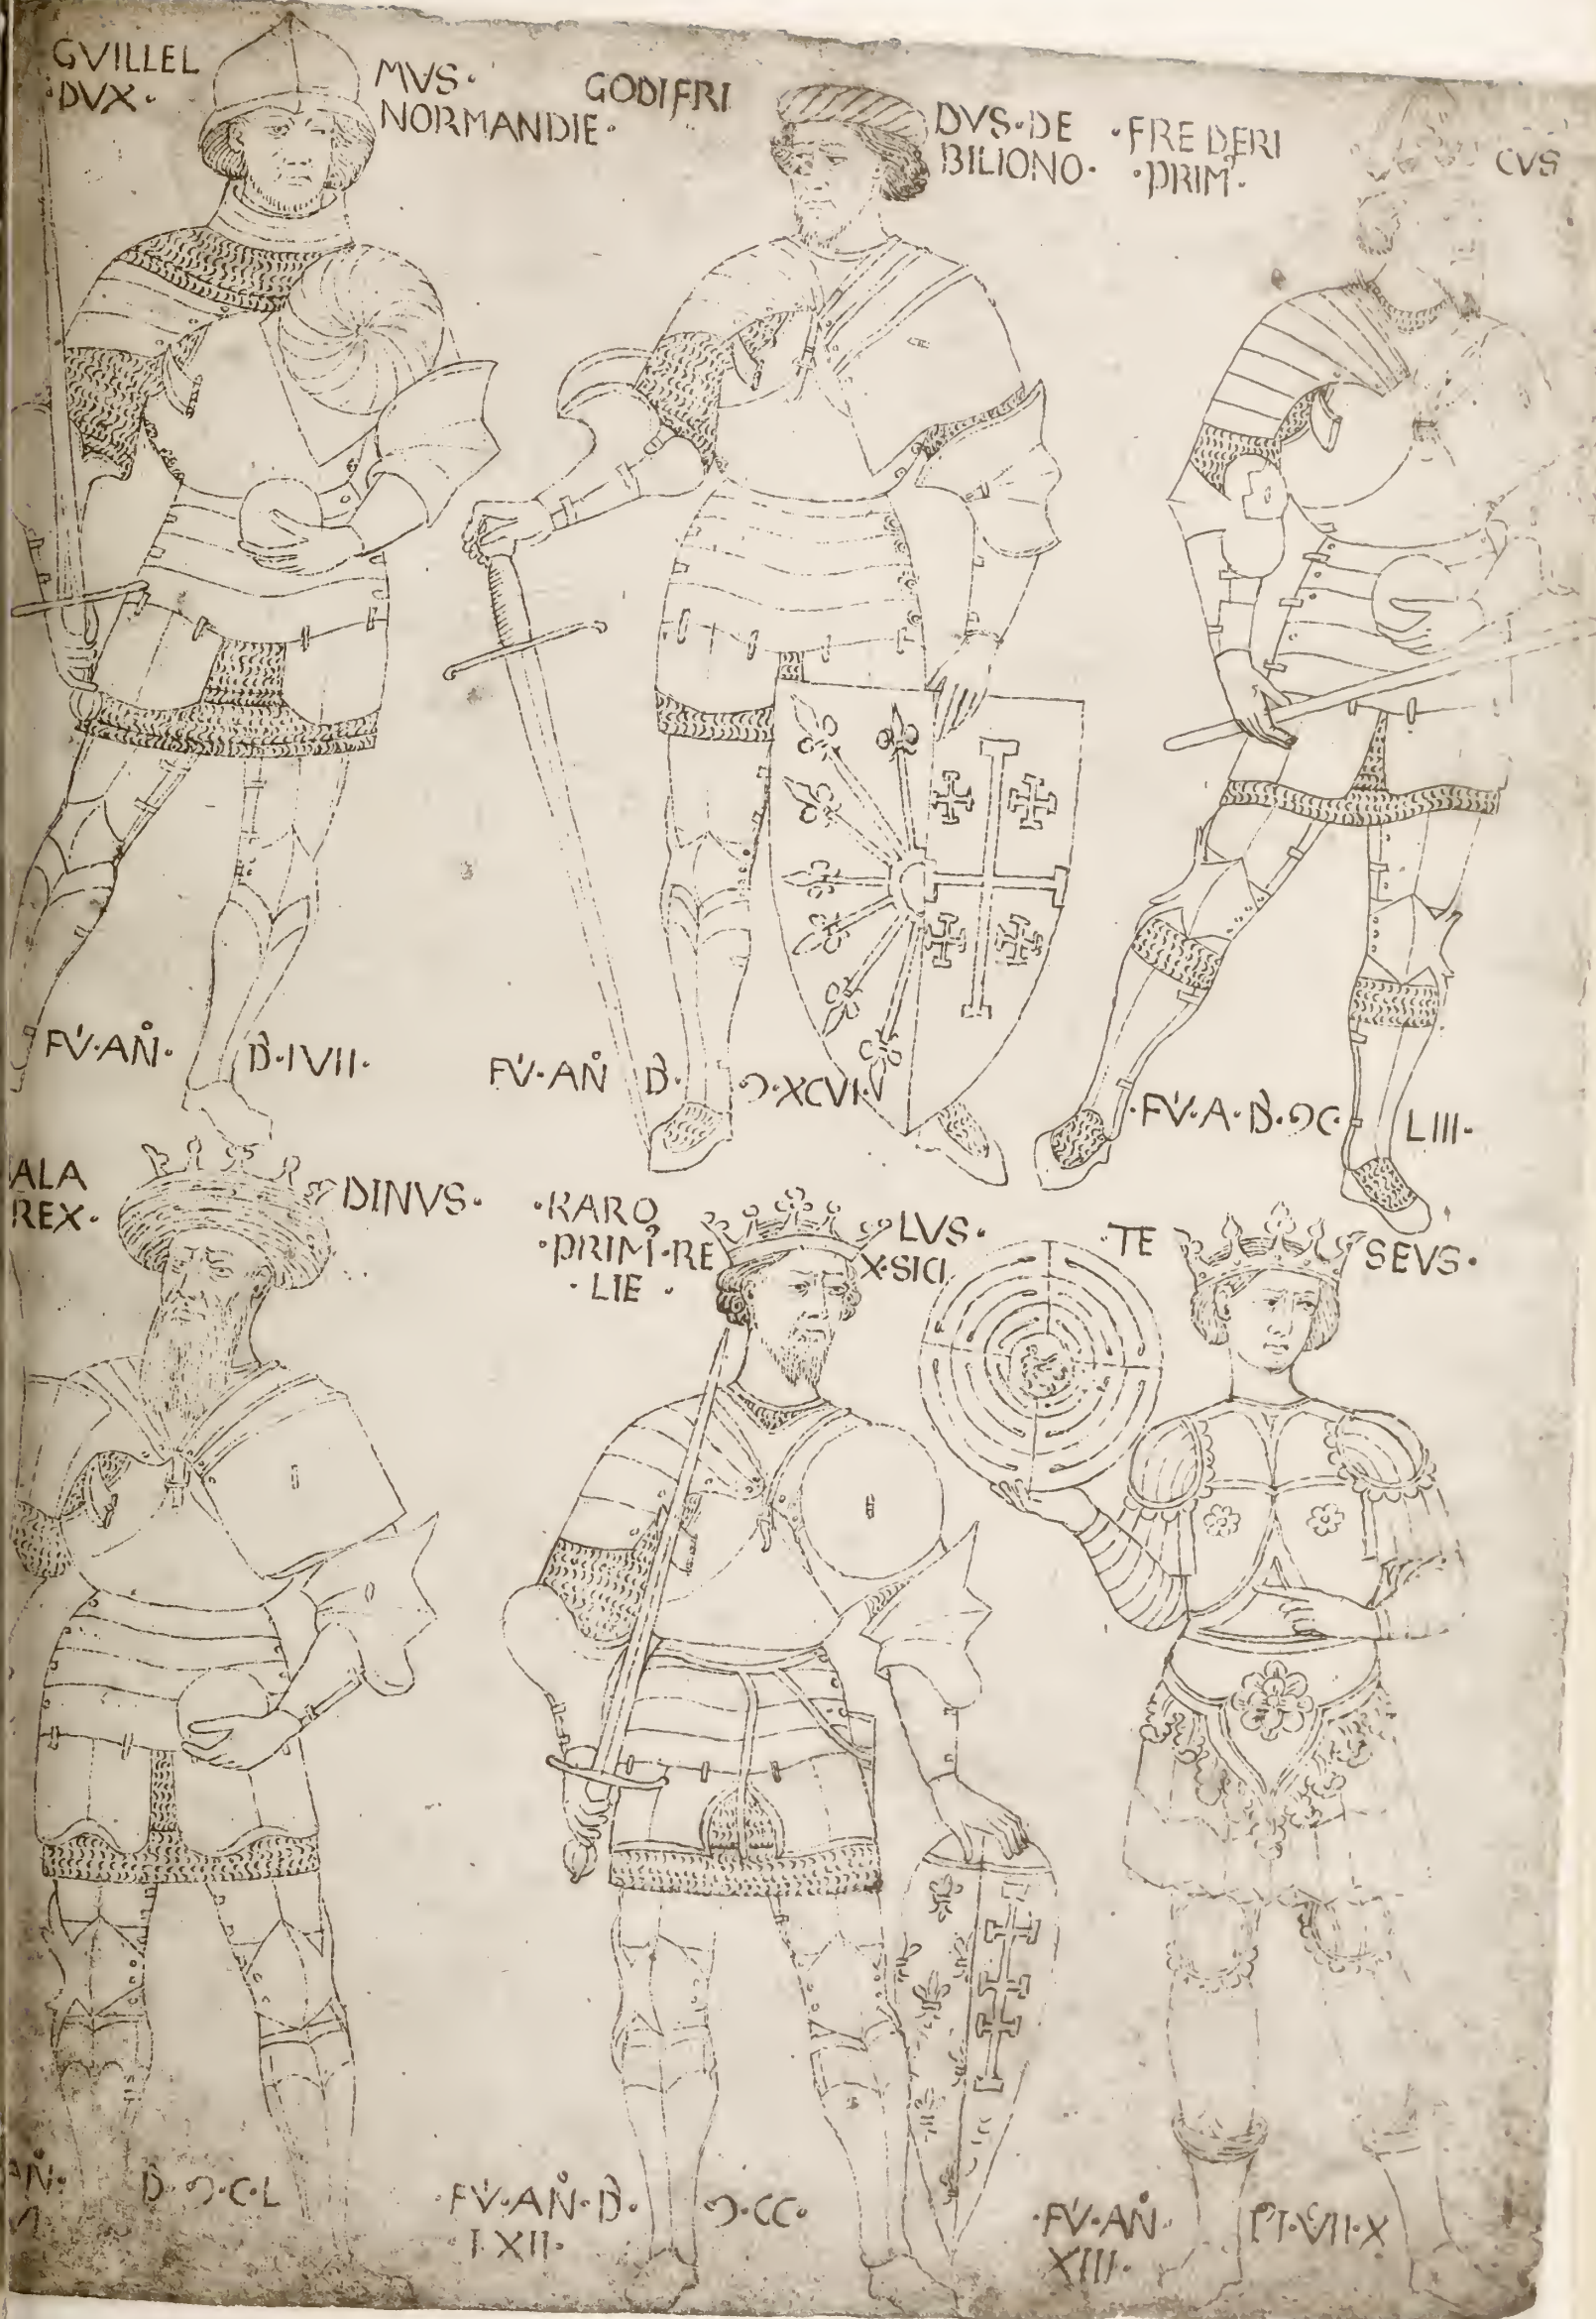 GVILLEL MVS·
·DVX· NORMANDIE·
GODIFRI DVS·DE
BILIONO·
·FREDERI CVS
·PRIM·
FV·AN· D·IVII·
FV·AN D· Ɔ·XCVI·
·FV·A·D·ƆC· LIII·
ALA DINVS·
REX·
·KARO LVS·
·PRIM·RE X·SICI
·LIE·
·TE SEVS·
AN· D·Ɔ·C·L
·FV·AN·D· Ɔ·CC·
·I·XII·
·FV·AN· VII·X
XIII·